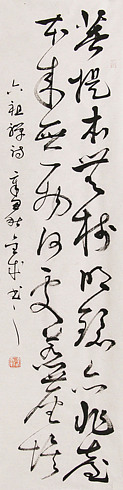 菩提本无树明镜亦非台
本来无一物何处惹尘埃
六祖禅诗